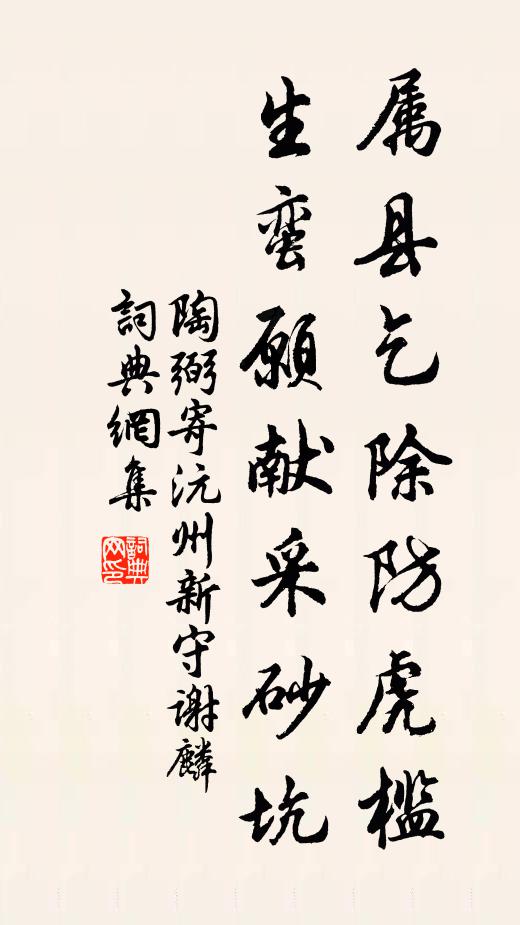 属县乞除防虎槛
生蛮願献采砂坑
陶弼寄沅州新守謝麟
詞典網集
詞典网印